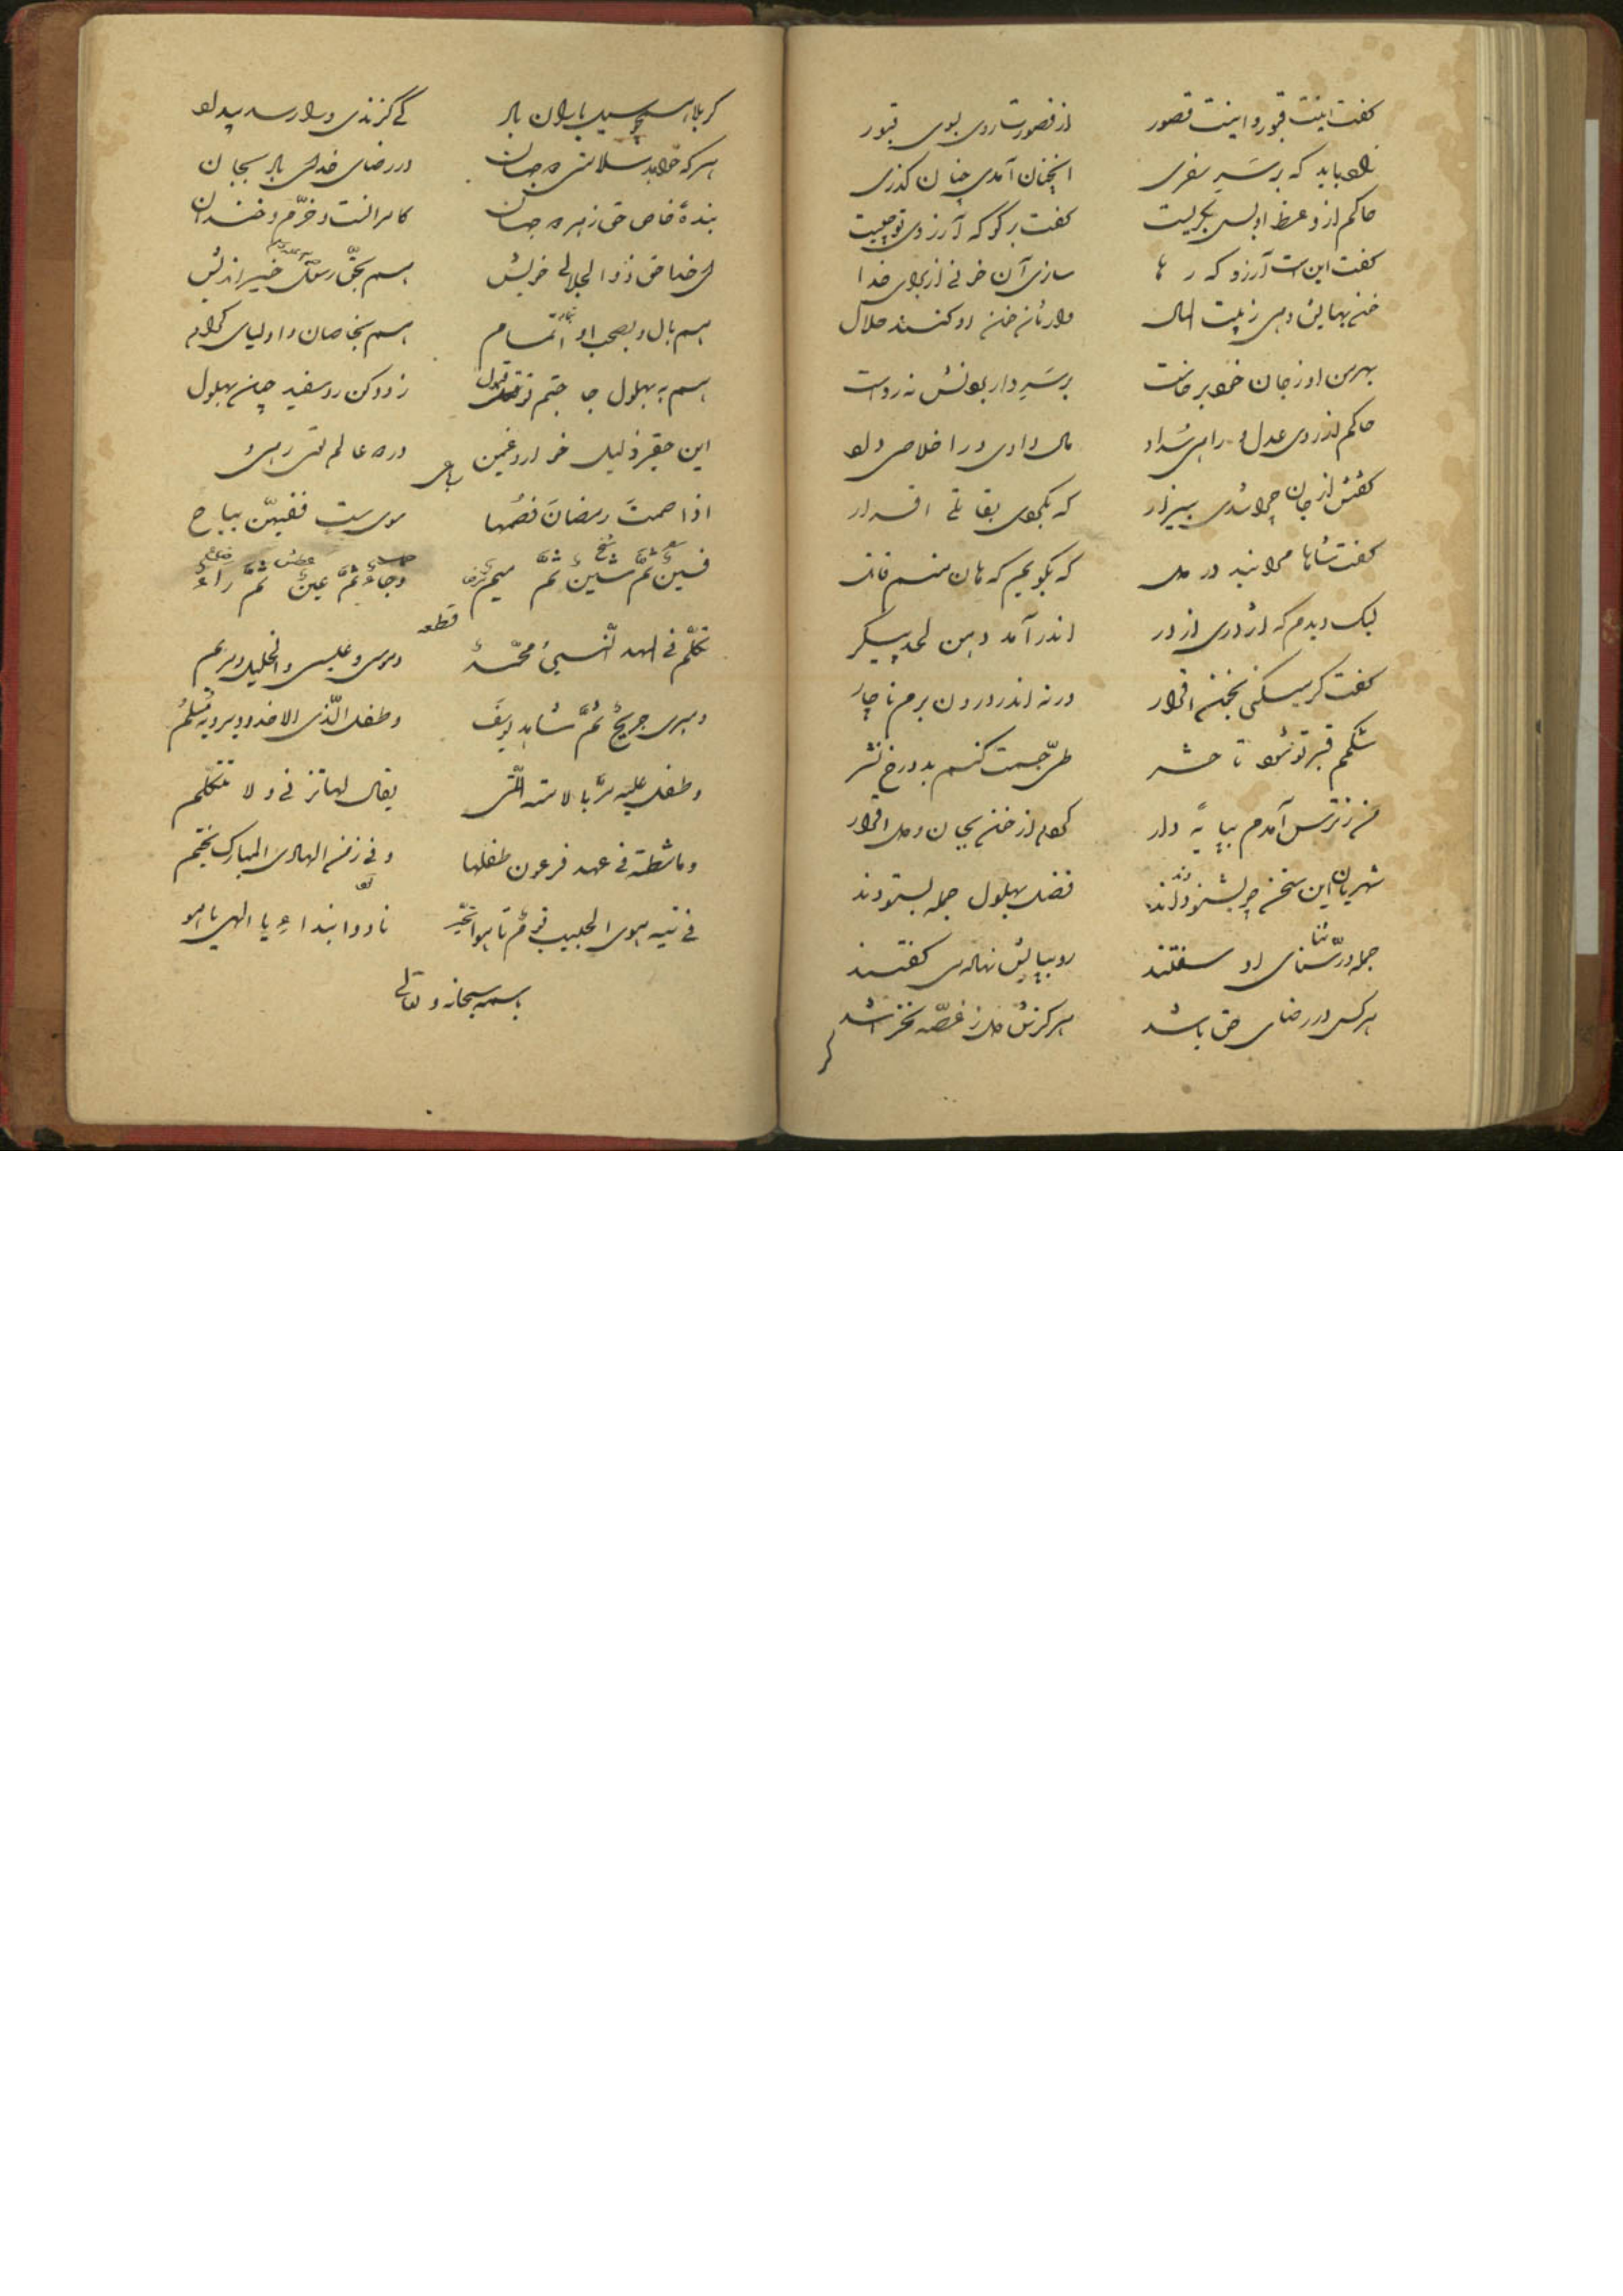 کفت اینت قبور و اینت قصور از قصورت روی بسوی قبور
زاد باید که بر سر سفری اینچنان آمدی چنان کذری
حاکم از وعظ او بسی بگریست کفت برکو که آرزوی تو چیست
کفت این است آرزو که رها سازی آن خونی از برای خدا
خون بهایش دهی ز بیت المال وارثان خون او کنند حلال
بهر من او ز جان خود برخاست بر سر دار بودنش نه رواست
حاکم از روی عدل و راه سداد مال دادی ورا خلاصی داد
کفتش از جان چرا شدی بیزار که بکوی بقاتلی اقرار
کفت شاها مرا نبد در دل که بکویم که هان منم قاتل
لیک دیدم که اژدری از در اندر آمد دهن لحد پیکر
کفت کر میکنی بخون اقرار ورنه اندر درون برم ناچار
شکمم قبر تو شود تا حشر طرح جسمت کنم بدوزخ نشر
من ز ترس آمدم بپایه دار کردم از خون بجان و دل اقرار
شهریان این سخن چو بشنودند فضل بهلول جمله بستودند
جمله در ثنای او سفتند رو بپایش نهاده می کفتند
هر کسی در رضای حق باشد هرکزش دل ز غصه نخراشد
کر
کر بلا همچو سیل باران باد کی کزندی ورا رسد بیداد
هر که خواهد سلامتی در جهان در رضای خدای باد بجان
بنده خاص حق ز هر دو جهان کامرانست و خرم و خندان
ای خدا حق ذوالجلالی خویش هم بحق رسول خیر اندیش
هم بآل و بصحب او بتمام هم بخاصان و اولیای کرام
هم به بهلول جا ختم قبول زود کن رو سفید چون بهلول
این حقیر ذلیل خوار و غمین در دو عالم
رباعی
اذا صمت رمضان فصمها سوی ست ففیهن یباح
فسین ثم شین ثم میم وحاء ثم عین ثم راء
قطعه
تکلم فی المهد النبی محمد وموسی وعیسی والخلیل ومریم
ومبری جریج ثم شاهد یوسف وطفل الذی الاخدود یرویه مسلم
وطفل علیه مر بالامة التی یقال لها تزنی ولا تتکلم
وماشطة فی عهد فرعون طفلها وفی زمن الهادی المبارک یختم
فی تیه هوی الحبیب قوم تاهوا نادوا بنداء یا الهی یا هو
بسمه سبحانه و تعالی